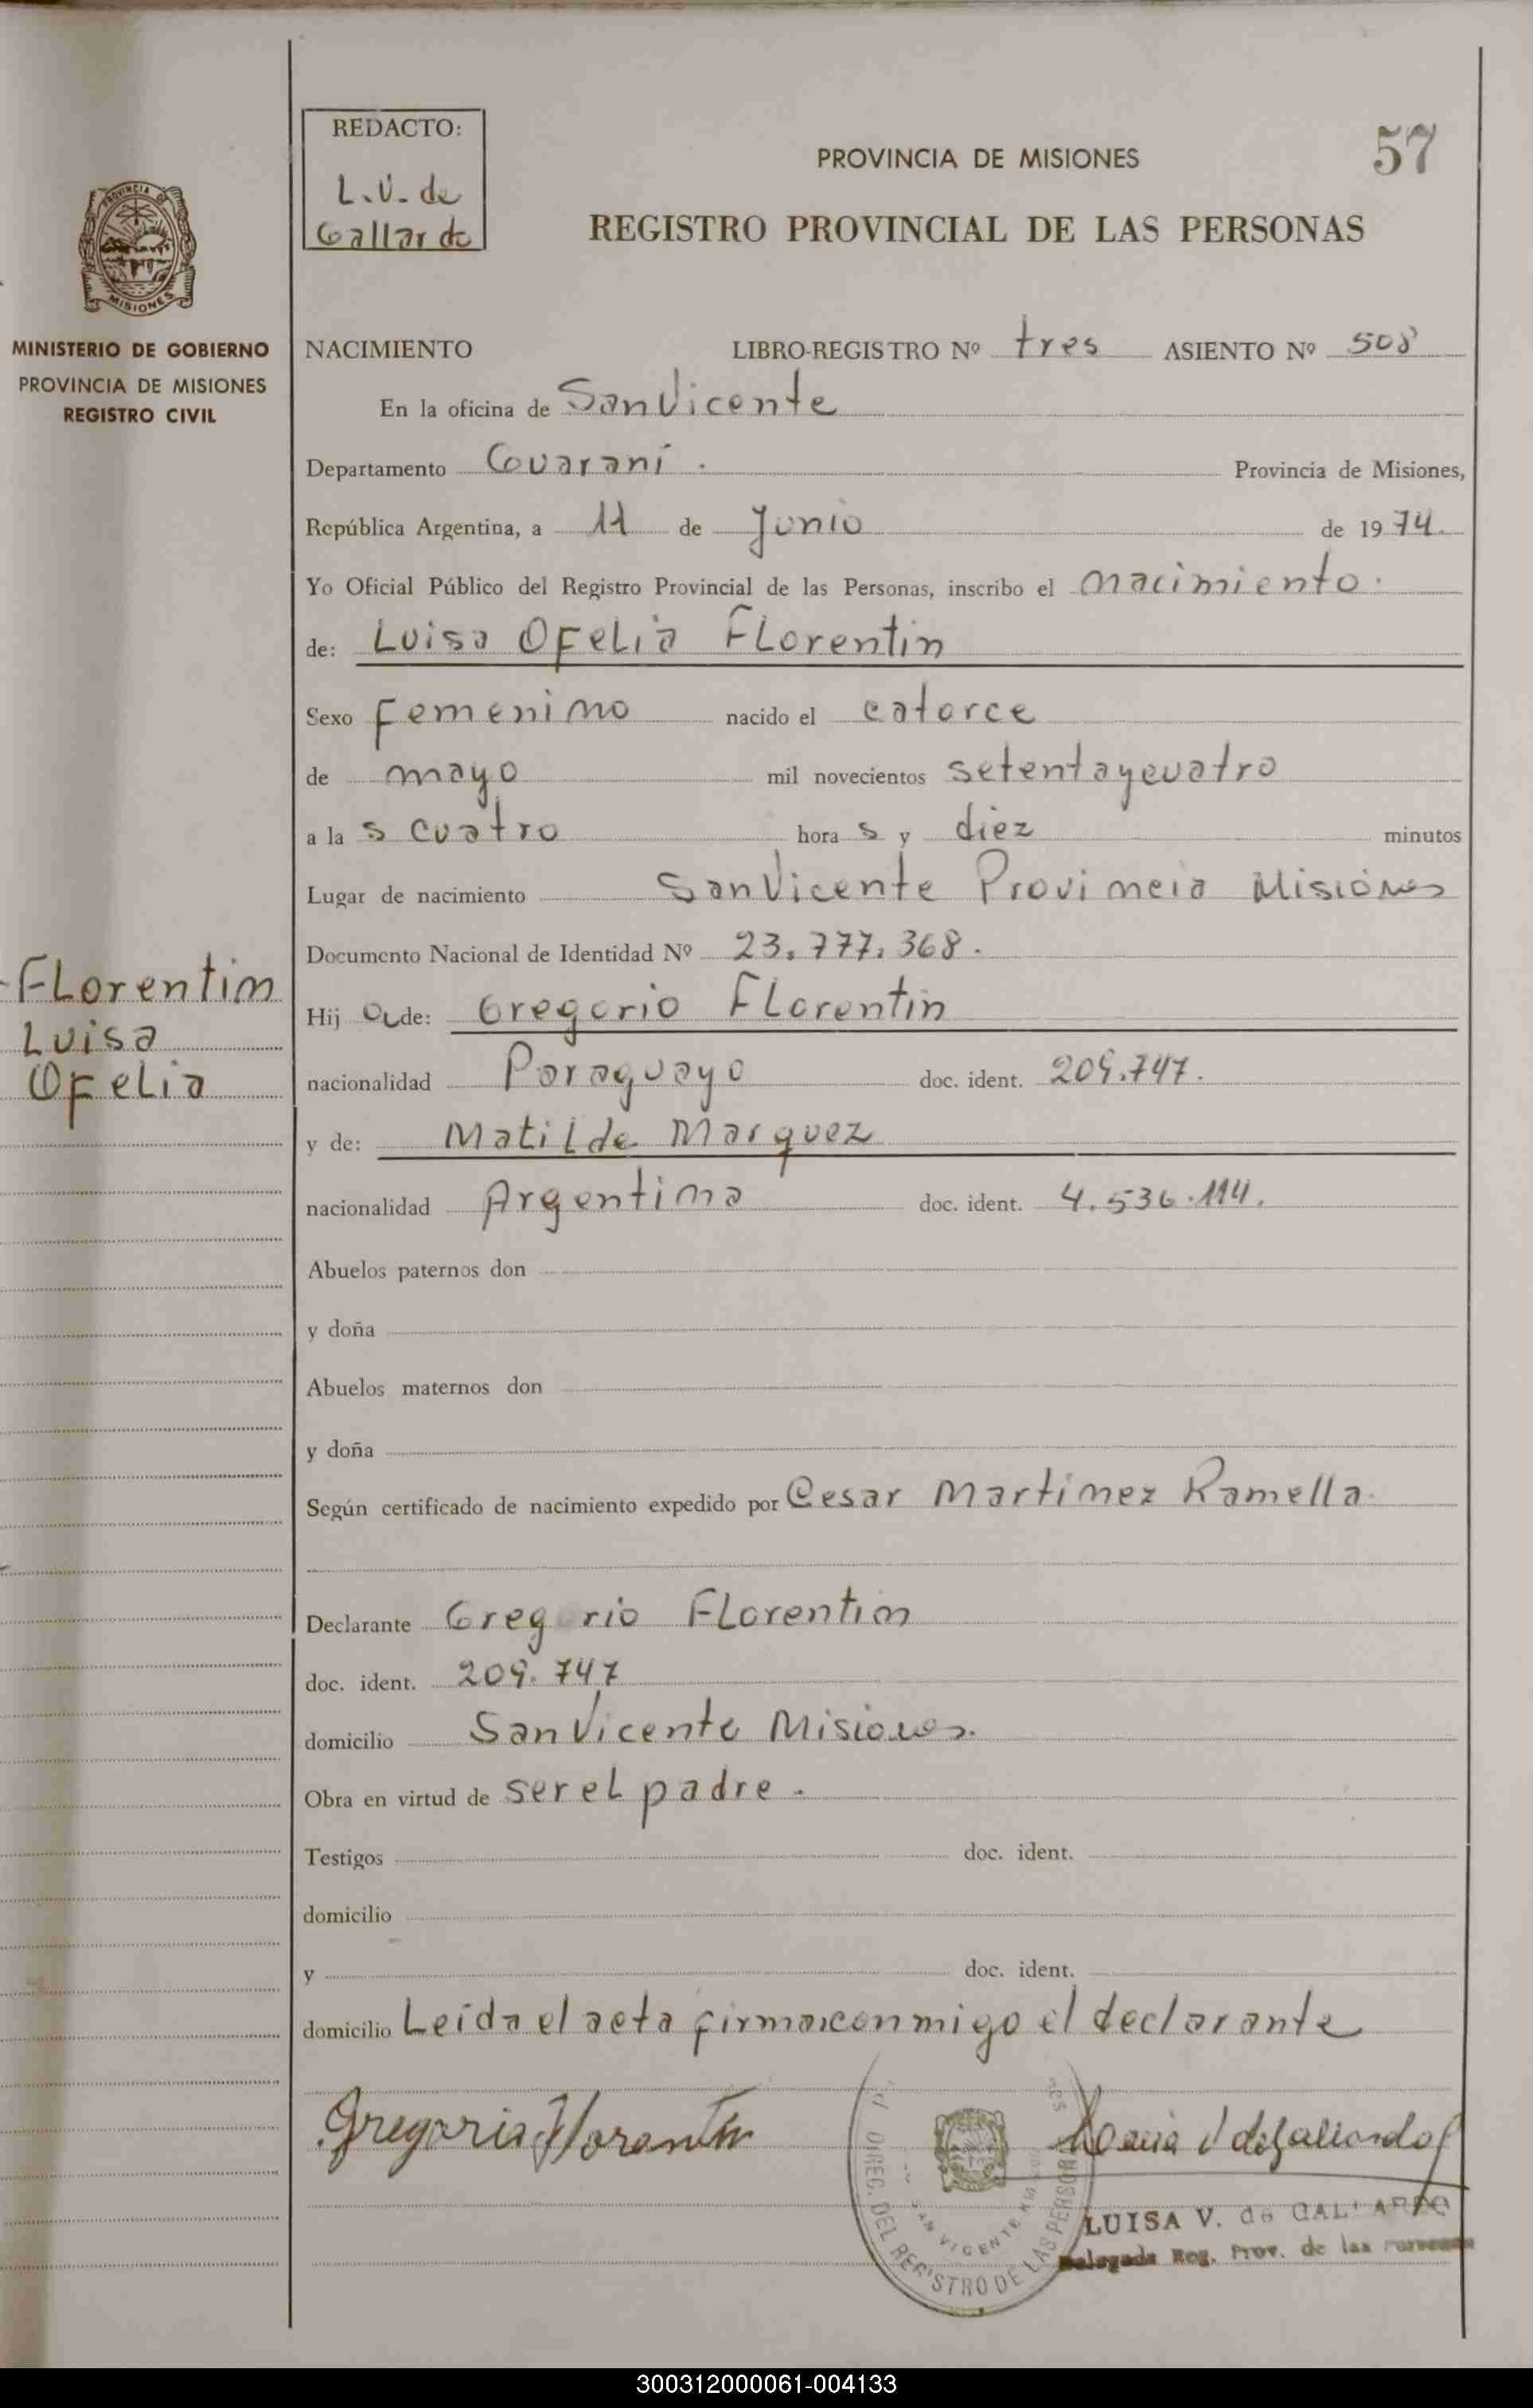 REDACTO:
L.V. de
Gallardo
PROVINCIA DE MISIONES
57
REGISTRO PROVINCIAL DE LAS PERSONAS
PROVINCIA DE
MISIONES
MINISTERIO DE GOBIERNO
PROVINCIA DE MISIONES
REGISTRO CIVIL
NACIMIENTO LIBRO-REGISTRO Nº tres ASIENTO Nº 508
En la oficina de San Vicente
Departamento Guarani. Provincia de Misiones,
República Argentina, a 11 de Junio de 1974.
Yo Oficial Público del Registro Provincial de las Personas, inscribo el nacimiento.
de: Luisa Ofelia Florentin
Sexo Femenino nacido el catorce
de mayo mil novecientos setentaycuatro
a la s cuatro hora s y diez minutos
Lugar de nacimiento San Vicente Provincia Misiones
Documento Nacional de Identidad Nº 23.777.368.
Florentin
Luisa
Ofelia
Hij a de: Gregorio Florentin
nacionalidad Paraguayo doc. ident. 209.747.
y de: Matilde Marquez
nacionalidad Argentina doc. ident. 4.536.114.
Abuelos paternos don
y doña
Abuelos maternos don
y doña
Según certificado de nacimiento expedido por Cesar Martinez Ramella.
Declarante Gregorio Florentin
doc. ident. 209.747
domicilio San Vicente Misiones.
Obra en virtud de ser el padre.
Testigos doc. ident.
domicilio
y doc. ident.
domicilio Leida el acta firma conmigo el declarante
Gregorio Florentin
DIREC. DEL REGISTRO DE LAS PERSONAS
SAN VICENTE
LUISA V. de GALLARDO
Delegada Reg. Prov. de las Personas
300312000061-004133